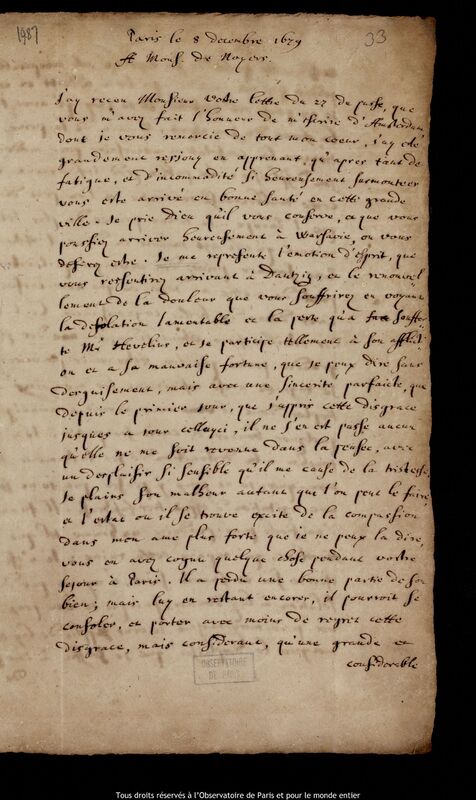 1987
33
Paris le 8 decembre 1679
A Mons. de Noyers.
J'ay receu Monsieur vostre lettre du 27 du passe, que
vous m'avez fait l'honneur de m'escrire d'Amsterdam,
dont je vous remercie de tout mon coeur, j'ay esté
grandement resjouy en apprenant, qu'apres tant de
fatigue, et d'incommodité si heureusement surmontees
vous este arrivé en bonne santé en cette grande
ville. Je prie Dieu qu'il vous conserve, et que vous
poussiez arriver heureusement à Warsavie, ou vous
desirez estre. Je me represente l'emotion d'esprit, que
vous ressentirez arrivant à Dantzig, et le renouvel
lement de la douleur que vous souffrirez en voyant
la desolation lamentable et la perte qu'a souffer
te Mr Hevelius, et je participe tellement à son afflicti
on et a sa mauvaise fortune, que je peux dire sans
desguisement, mais avec une sincerité parfaicte, que
depuis le premier jour, que j'appris cette disgrace
jusques a jour celluycy, il ne s'en est passe aucun
qu'elle ne me soit revenue dans la pensee, avec
un desplaisir si sensible qu'il me cause de la tristesse.
Je plains son malheur autant que l'on peut le faire,
et l'estat ou il se trouve excite de la compassion
dans mon ame plus forte que je ne peux la dire,
vous en avez cognu quelque chose pendant vostre
sejour à Paris. Il a perdu une bonne partie de son
bien; mais luy en restant encores, il pourroit se
consoler, et porter avec moins de regret cette
disgrace, mais considerant, qu'une grande et
considerable
OBSERVATOIRE
DE PARIS
Tous droits réservés à l'Observatoire de Paris et pour le monde entier